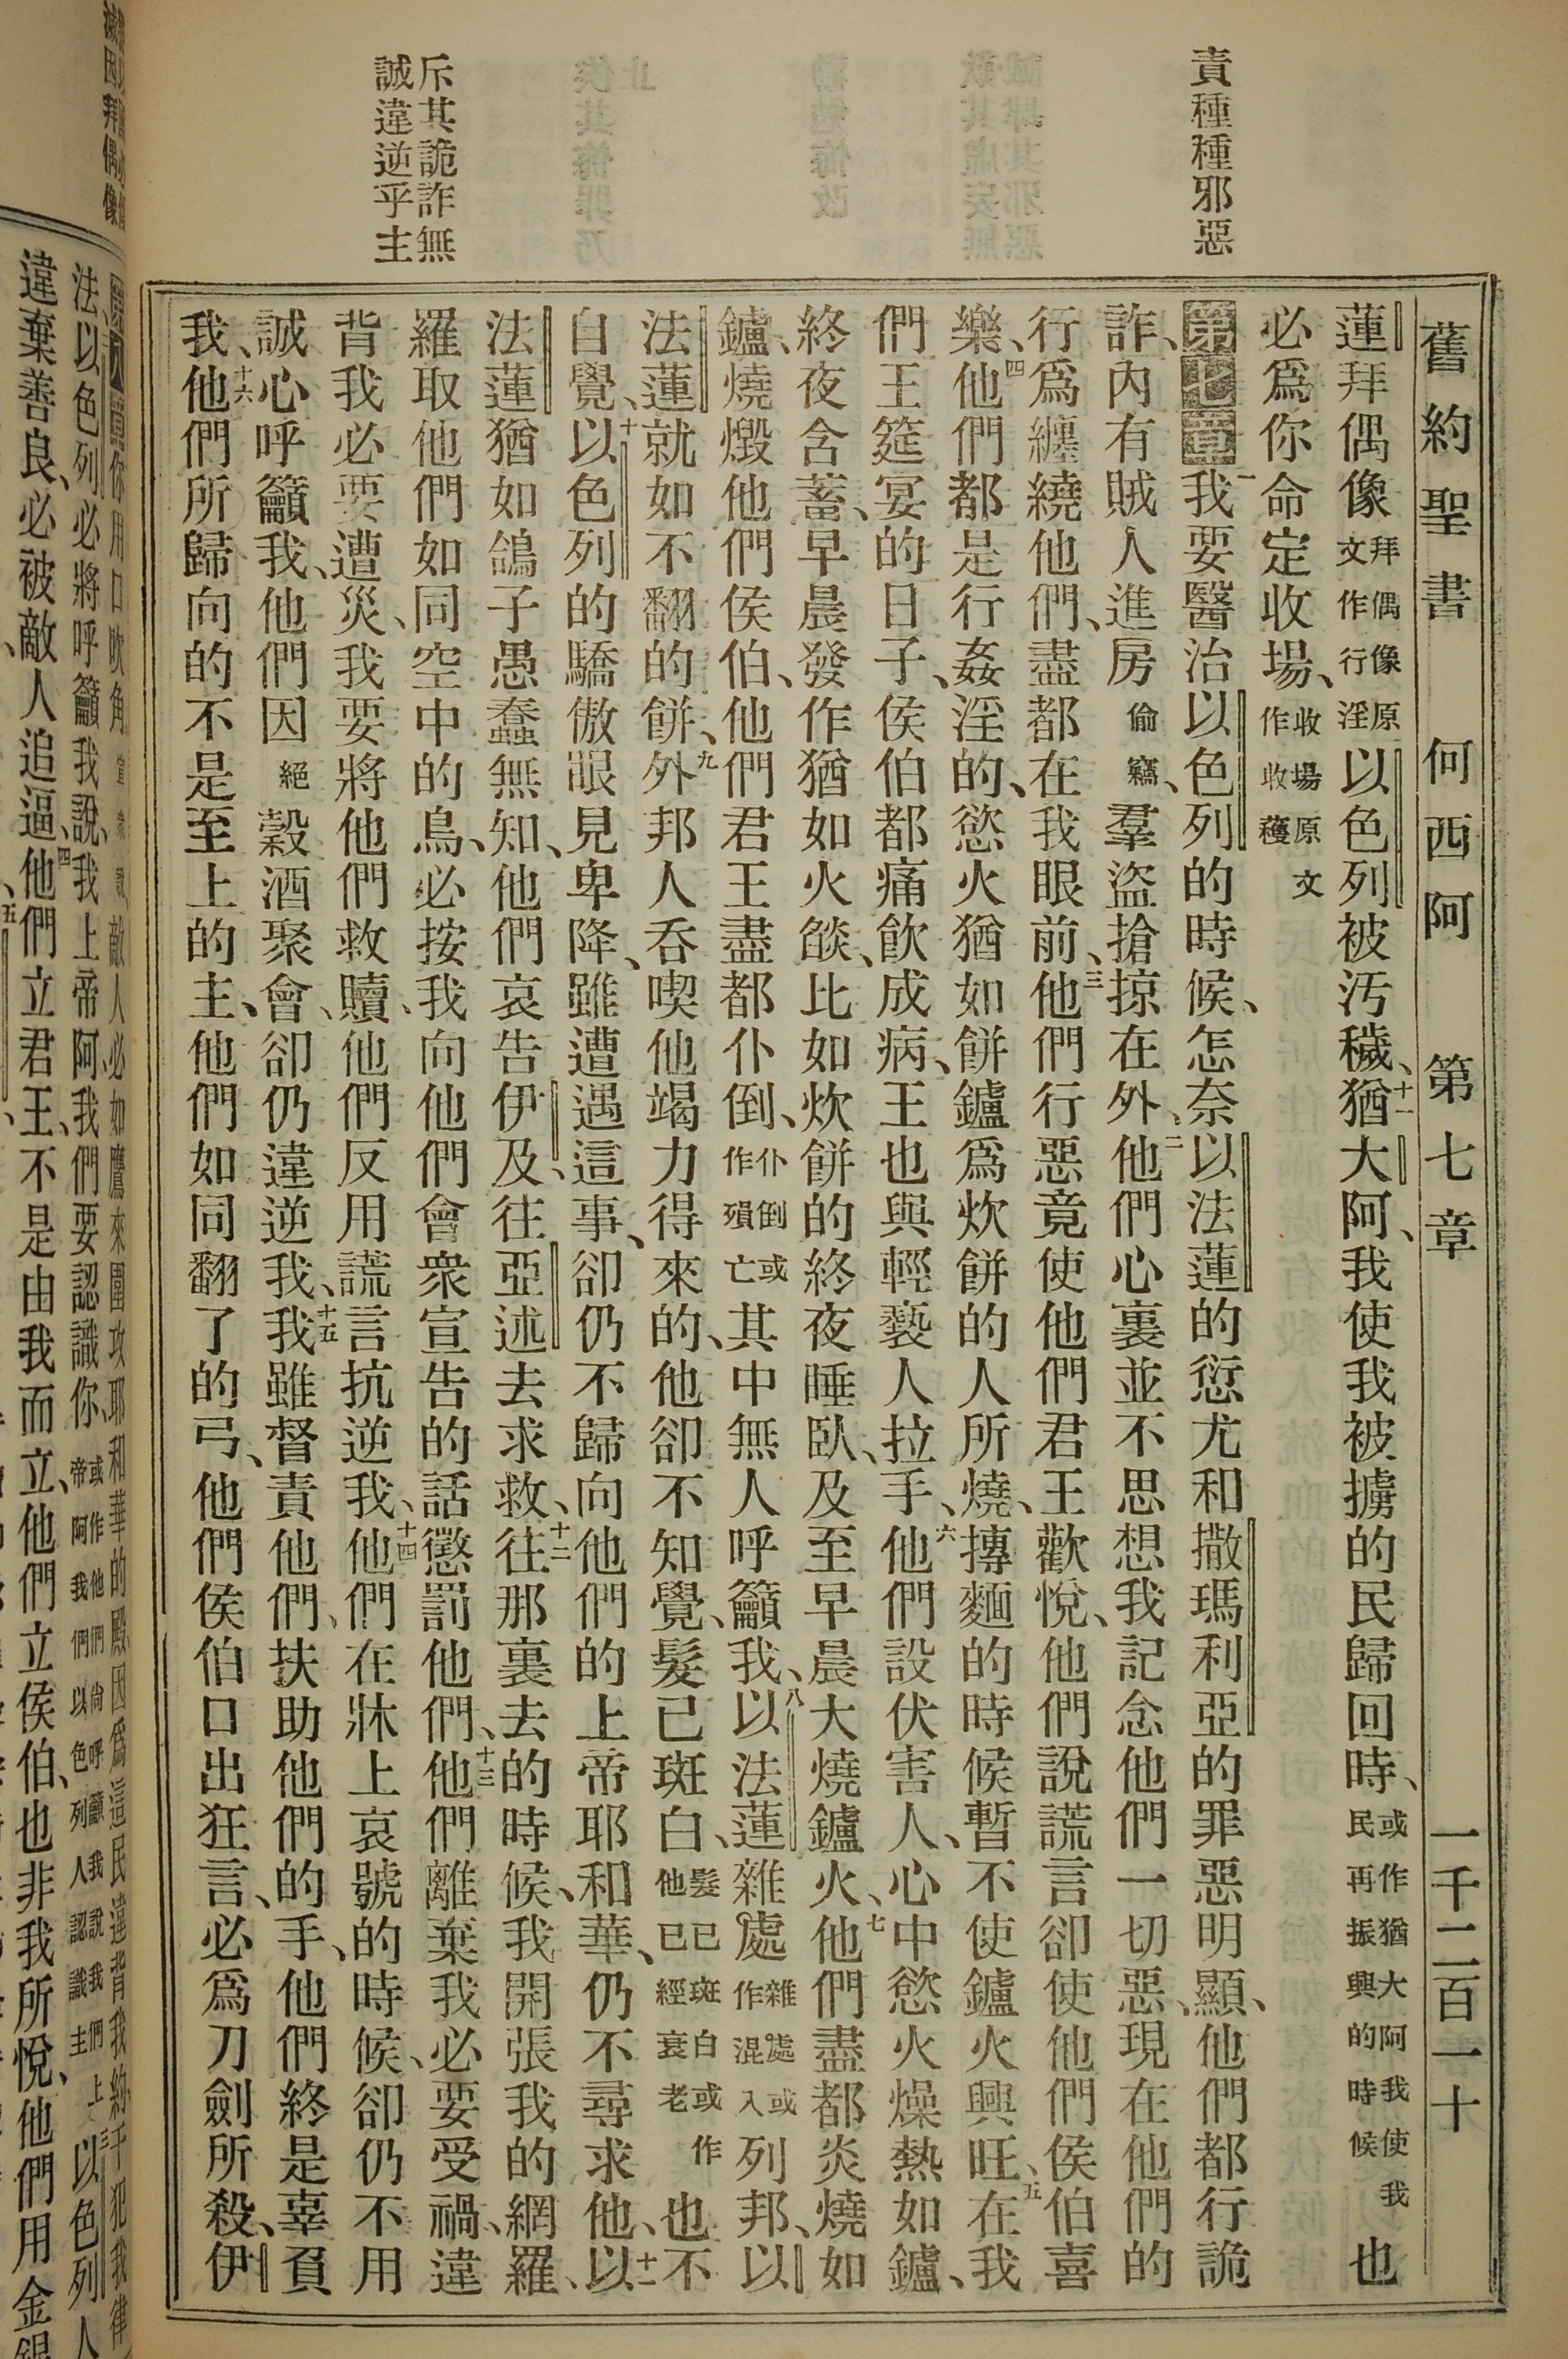 責種種邪惡
斥其詭詐無
誠違逆乎主
舊約聖書 何西阿 第七章 一千二百一十
蓮拜偶像拜偶像原文作行淫以色列被汚穢、十一猶大阿、我使我被擄的民歸回時、或作猶大阿我使我民再振興的時候也
必爲你命定收場、收場原文作收穫
第七章一我要醫治以色列的時候、怎奈以法蓮的愆尤和撒瑪利亞的罪惡明顯、他們都行詭
詐、內有賊人進房偷竊、羣盜搶掠在外、二他們心裏並不思想我記念他們一切惡、現在他們的
行爲纏繞他們、盡都在我眼前、三他們行惡竟使他們君王歡悅、他們說謊言卻使他們侯伯喜
樂、四他們都是行姦淫的、慾火猶如餅鑪爲炊餅的人所燒、摶麵的時候暫不使鑪火興旺、五在我
們王筵宴的日子、侯伯都痛飮成病、王也與輕褻人拉手、六他們設伏害人、心中慾火燥熱如鑪、
終夜含蓄、早晨發作猶如火燄、比如炊餅的終夜睡臥、及至早晨大燒鑪火、七他們盡都炎燒如
鑪、燒燬他們侯伯、他們君王盡都仆倒、仆倒或作殞亡其中無人呼籲我、八以法蓮雜處雜處或作混入列邦、以
法蓮就如不翻的餅、九外邦人吞喫他竭力得來的、他卻不知覺、髮已斑白、髮已斑白或作他已經衰老也不
自覺、十以色列的驕傲眼見卑降、雖遭遇這事、卻仍不歸向他們的上帝耶和華、仍不尋求他、十一以
法蓮猶如鴿子愚蠢無知、他們哀告伊及、往亞述去求救、十二往那裏去的時候、我開張我的網羅、
羅取他們如同空中的鳥、必按我向他們會衆宣告的話懲罰他們、十三他們離棄我必要受禍、違
背我必要遭災、我要將他們救贖、他們反用謊言抗逆我、十四他們在牀上哀號的時候、卻仍不用
誠心呼籲我、他們因絕穀酒聚會、卻仍違逆我、十五我雖督責他們、扶助他們的手、他們終是辜負
我、十六他們所歸向的不是至上的主、他們如同翻了的弓、他們侯伯口出狂言、必爲刀劍所殺、伊
你用口吹角宣衆敵人必如鷹來圍攻耶和華的殿因爲這民違背我約干犯我律
法以色列必將呼籲我說、我上帝阿、我們要認識你、或作他們尙呼籲我說我們上帝阿我們以色列人認識主三以色列人
違棄善良、必被敵人追逼、四他們立君王、不是由我而立、他們立侯伯、也非我所悅、他們用金銀